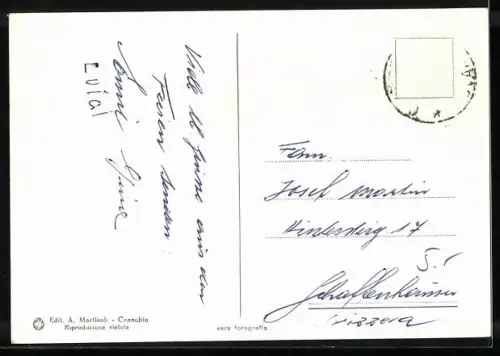 Viele lb. Grüsse aus den
Ferien senden:
Luigi
Edit. A. Martinoli - Cannobio
Riproduzione vietata
vera fotografia
Fam.
Josef Martin
Hintersteig 17
Schaffhausen
Svizzera